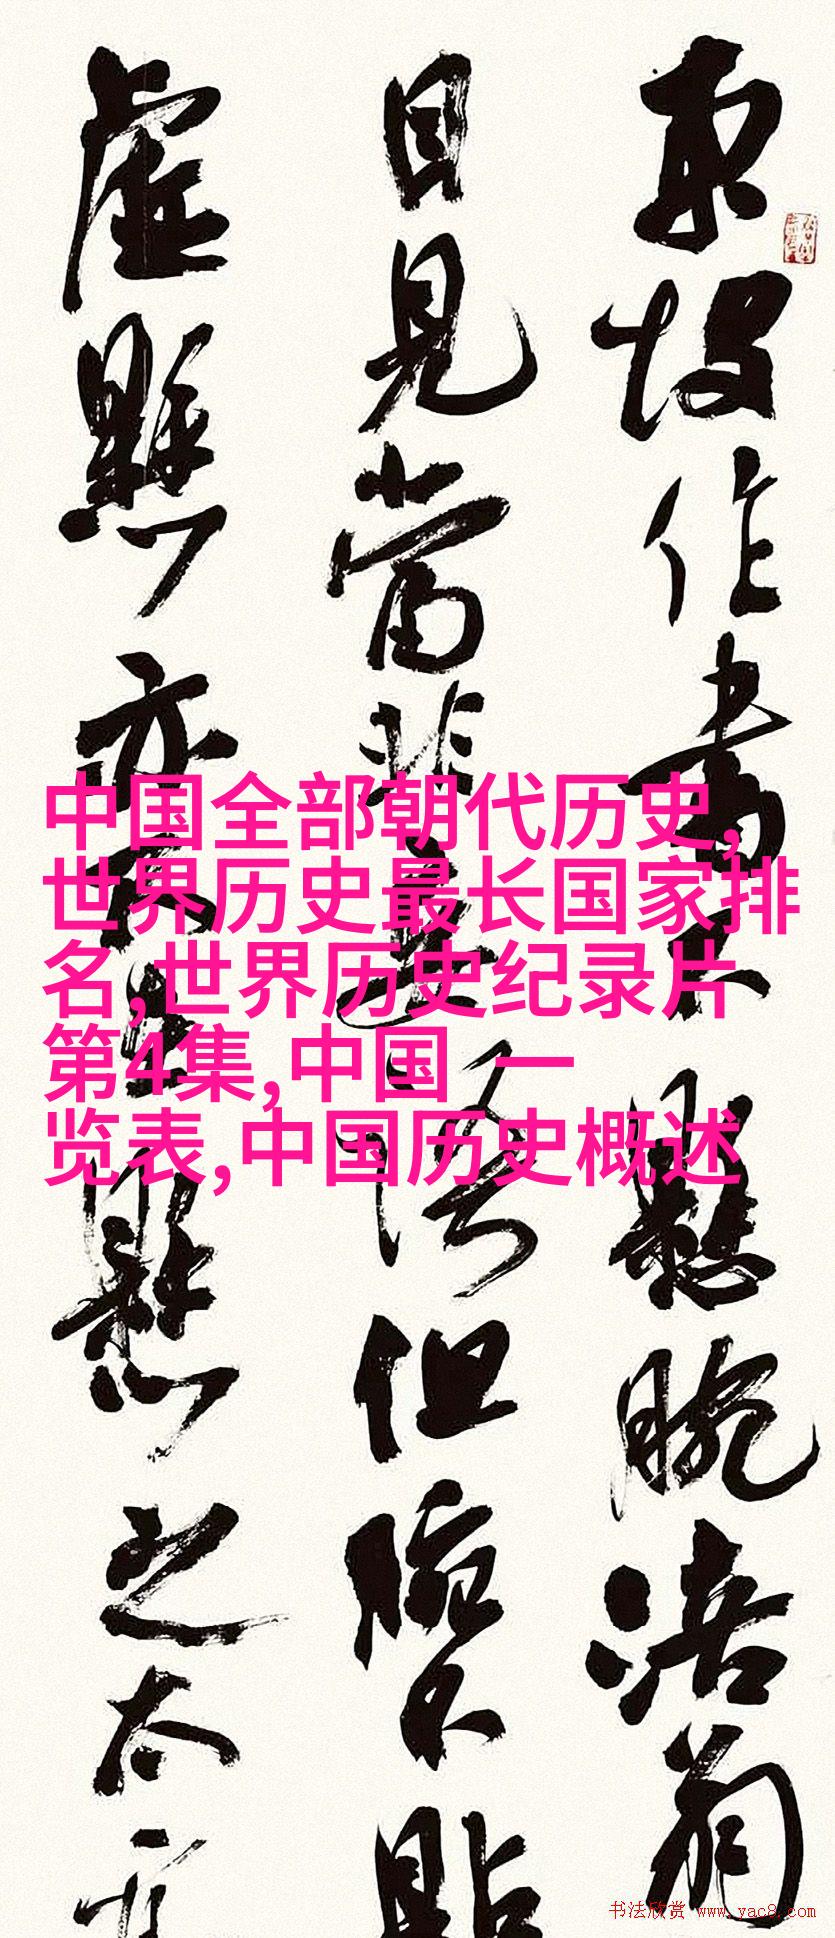 東坡作書不懸腕涪翁
目見當非妄語但腕不貼
虛懸亦懸之太
中国全部朝代历史,
世界历史最长国家排
名,世界历史纪录片
第4集,中国 一
览表,中国历史概述
书法欣赏 www.yac8.com